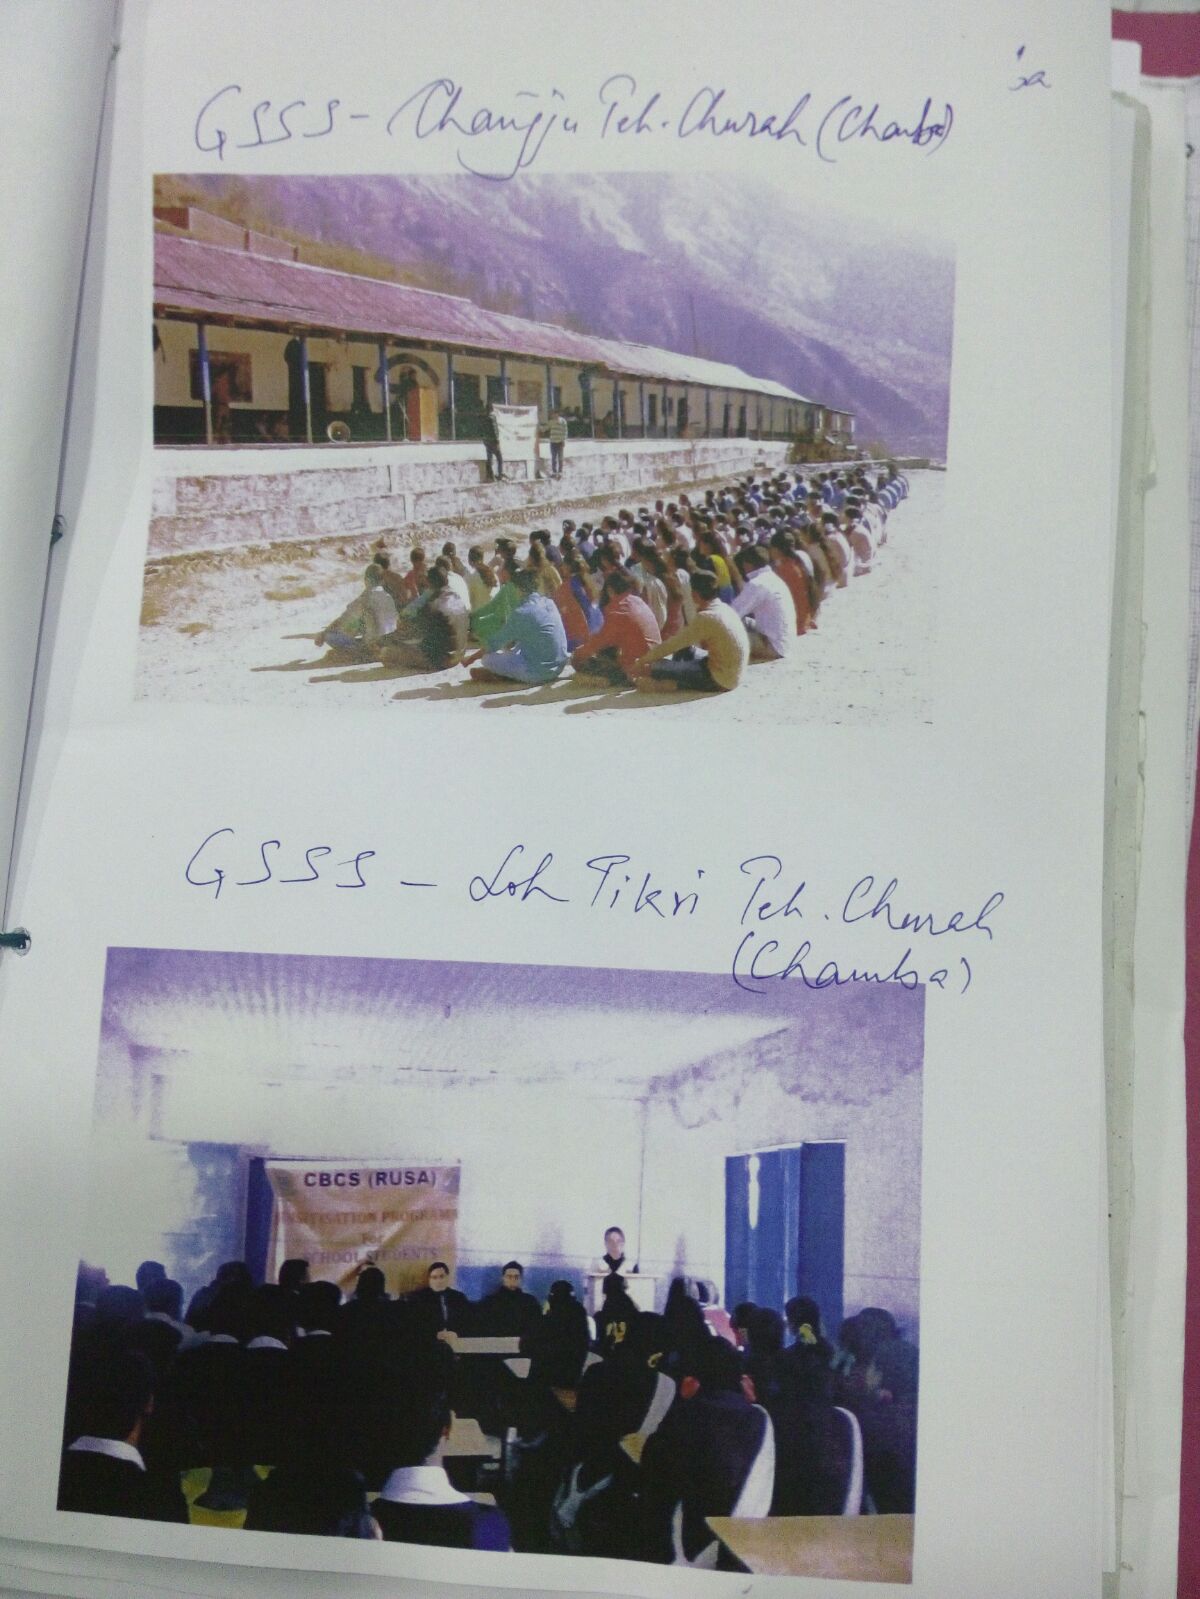 GSSS - Chanjju Teh. Churah (Chamba)
GSSS - Loh Tikri Teh. Churah
(Chamba)
CBCS (RUSA)
NSITISATION PROGRAM
For
SCHOOL STUDENTS